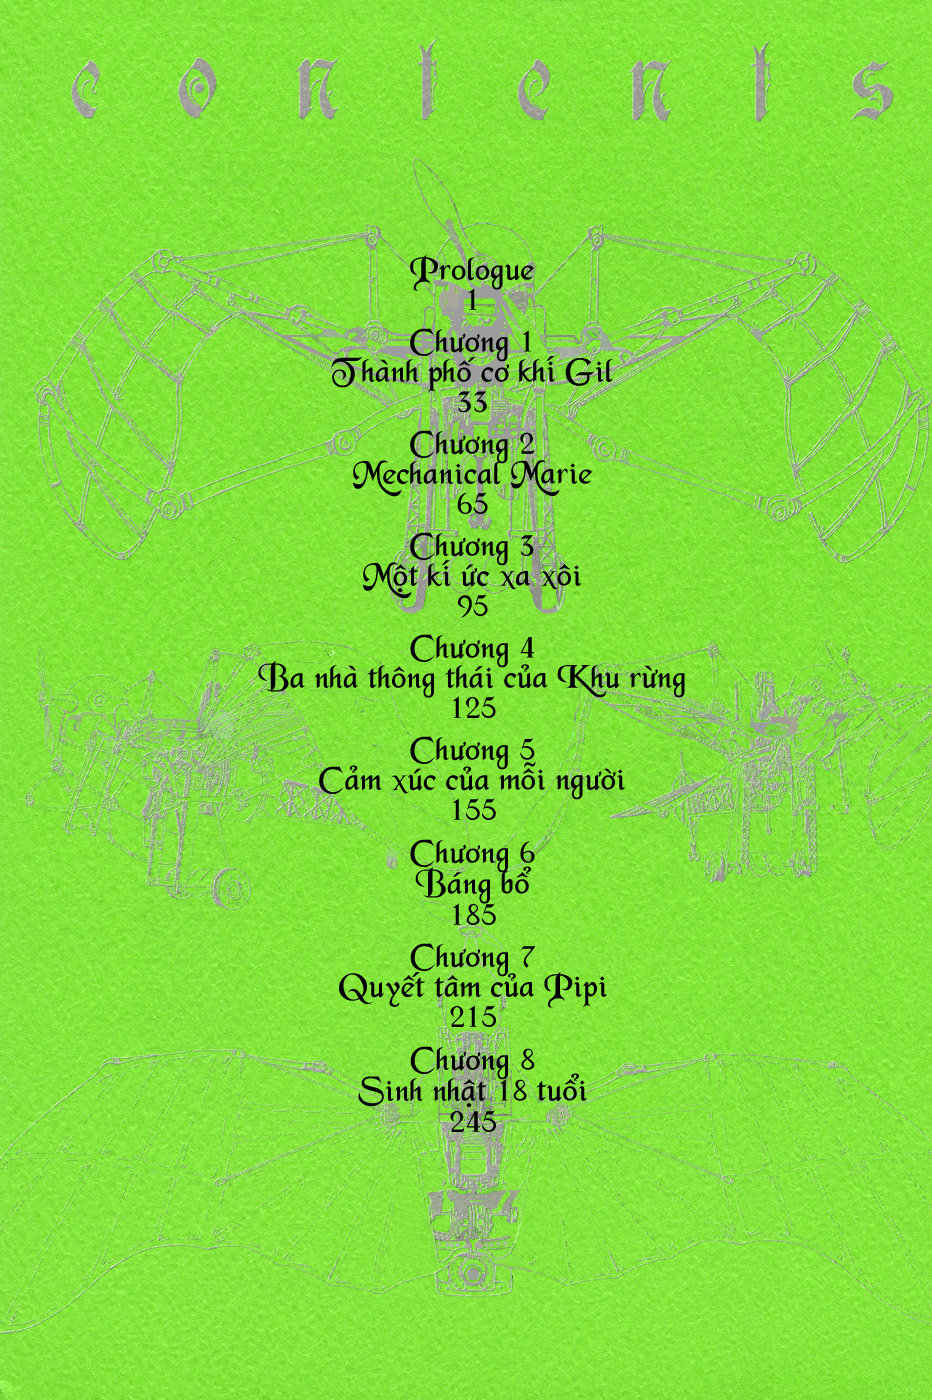 contents
Prologue
1
Chương 1
Thành phố cơ khí Gil
33
Chương 2
Mechanical Marie
65
Chương 3
Một kí ức xa xôi
95
Chương 4
Ba nhà thông thái của Khu rừng
125
Chương 5
Cảm xúc của mỗi người
155
Chương 6
Báng bổ
185
Chương 7
Quyết tâm của Pipi
215
Chương 8
Sinh nhật 18 tuổi
245